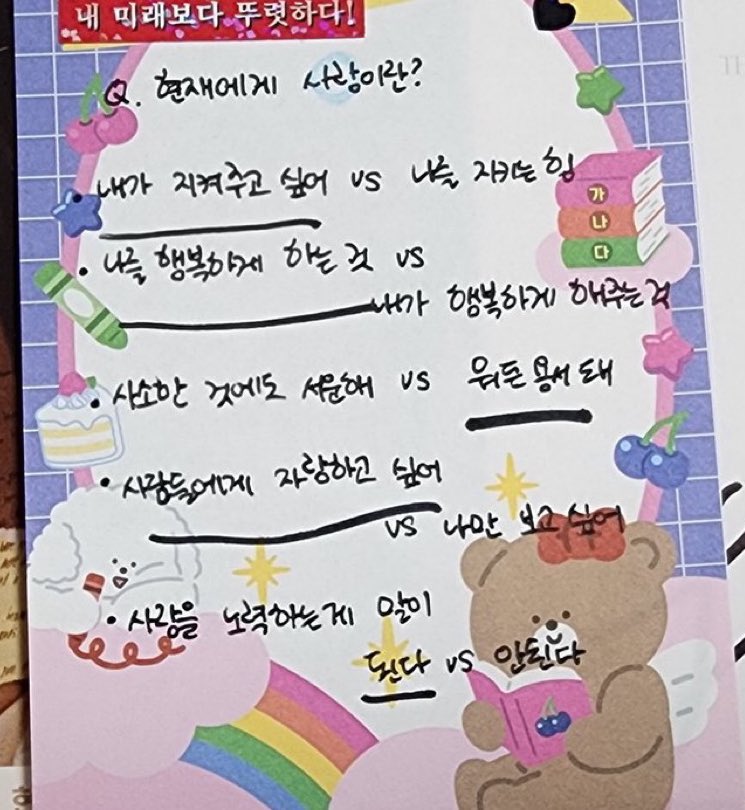 내 미래보다 뚜렷하다!
Q. 현재에게 사랑이란?
내가 지켜주고 싶어 vs 나를 지키는 힘
가
나
다
• 나를 행복하게 하는 것 vs
내가 행복하게 해주는 것
• 사소한 것에도 서운해 vs 뭐든 용서 돼
• 사람들에게 자랑하고 싶어
vs 나만 보고 싶어
• 사랑을 노력하는게 말이
된다 vs 안된다